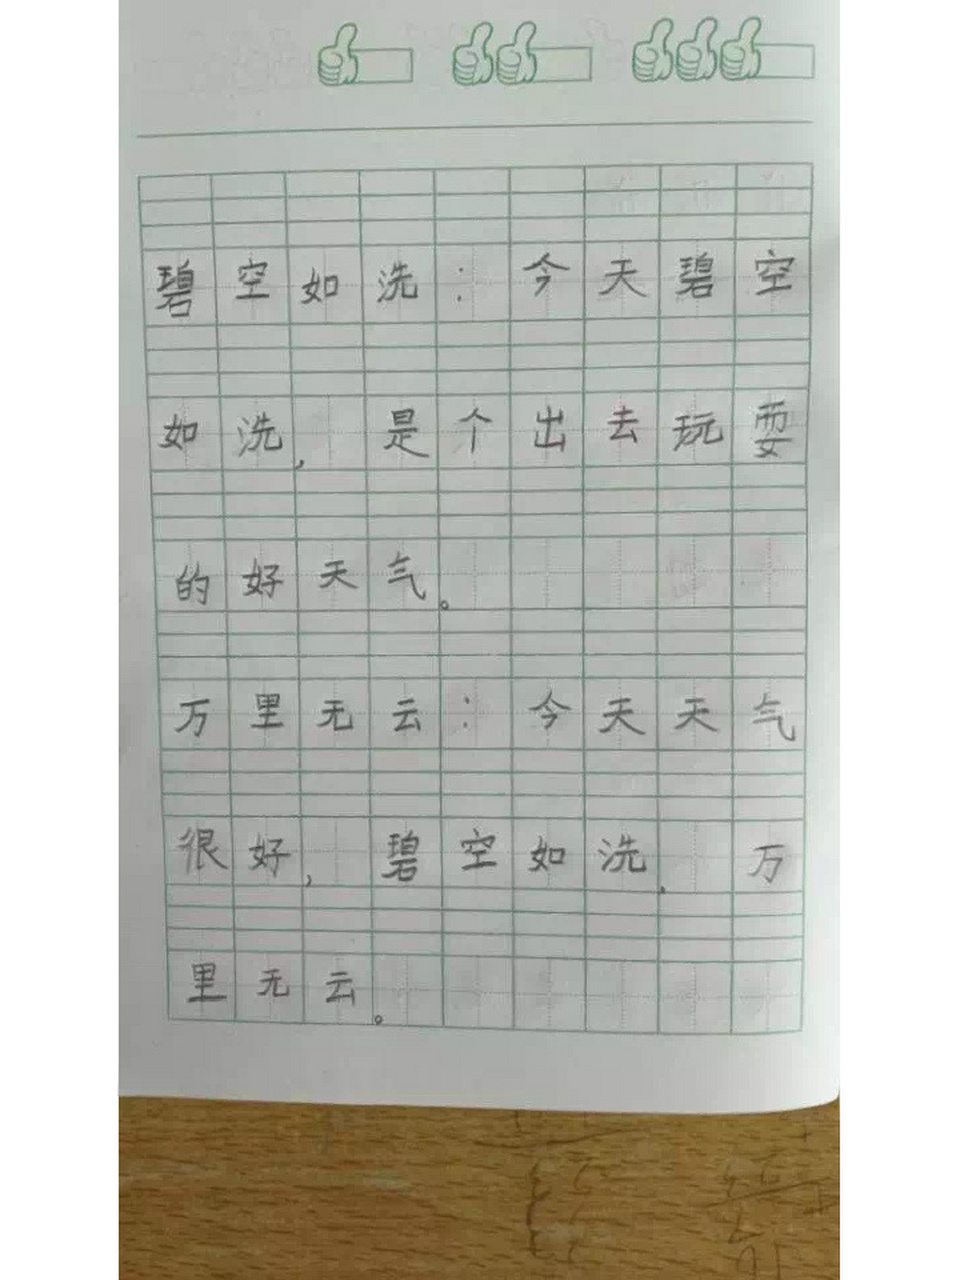 碧空如洗:今天碧空
如洗,是个出去玩耍
的好天气。
万里无云:今天天气
很好,碧空如洗.万
里无云。